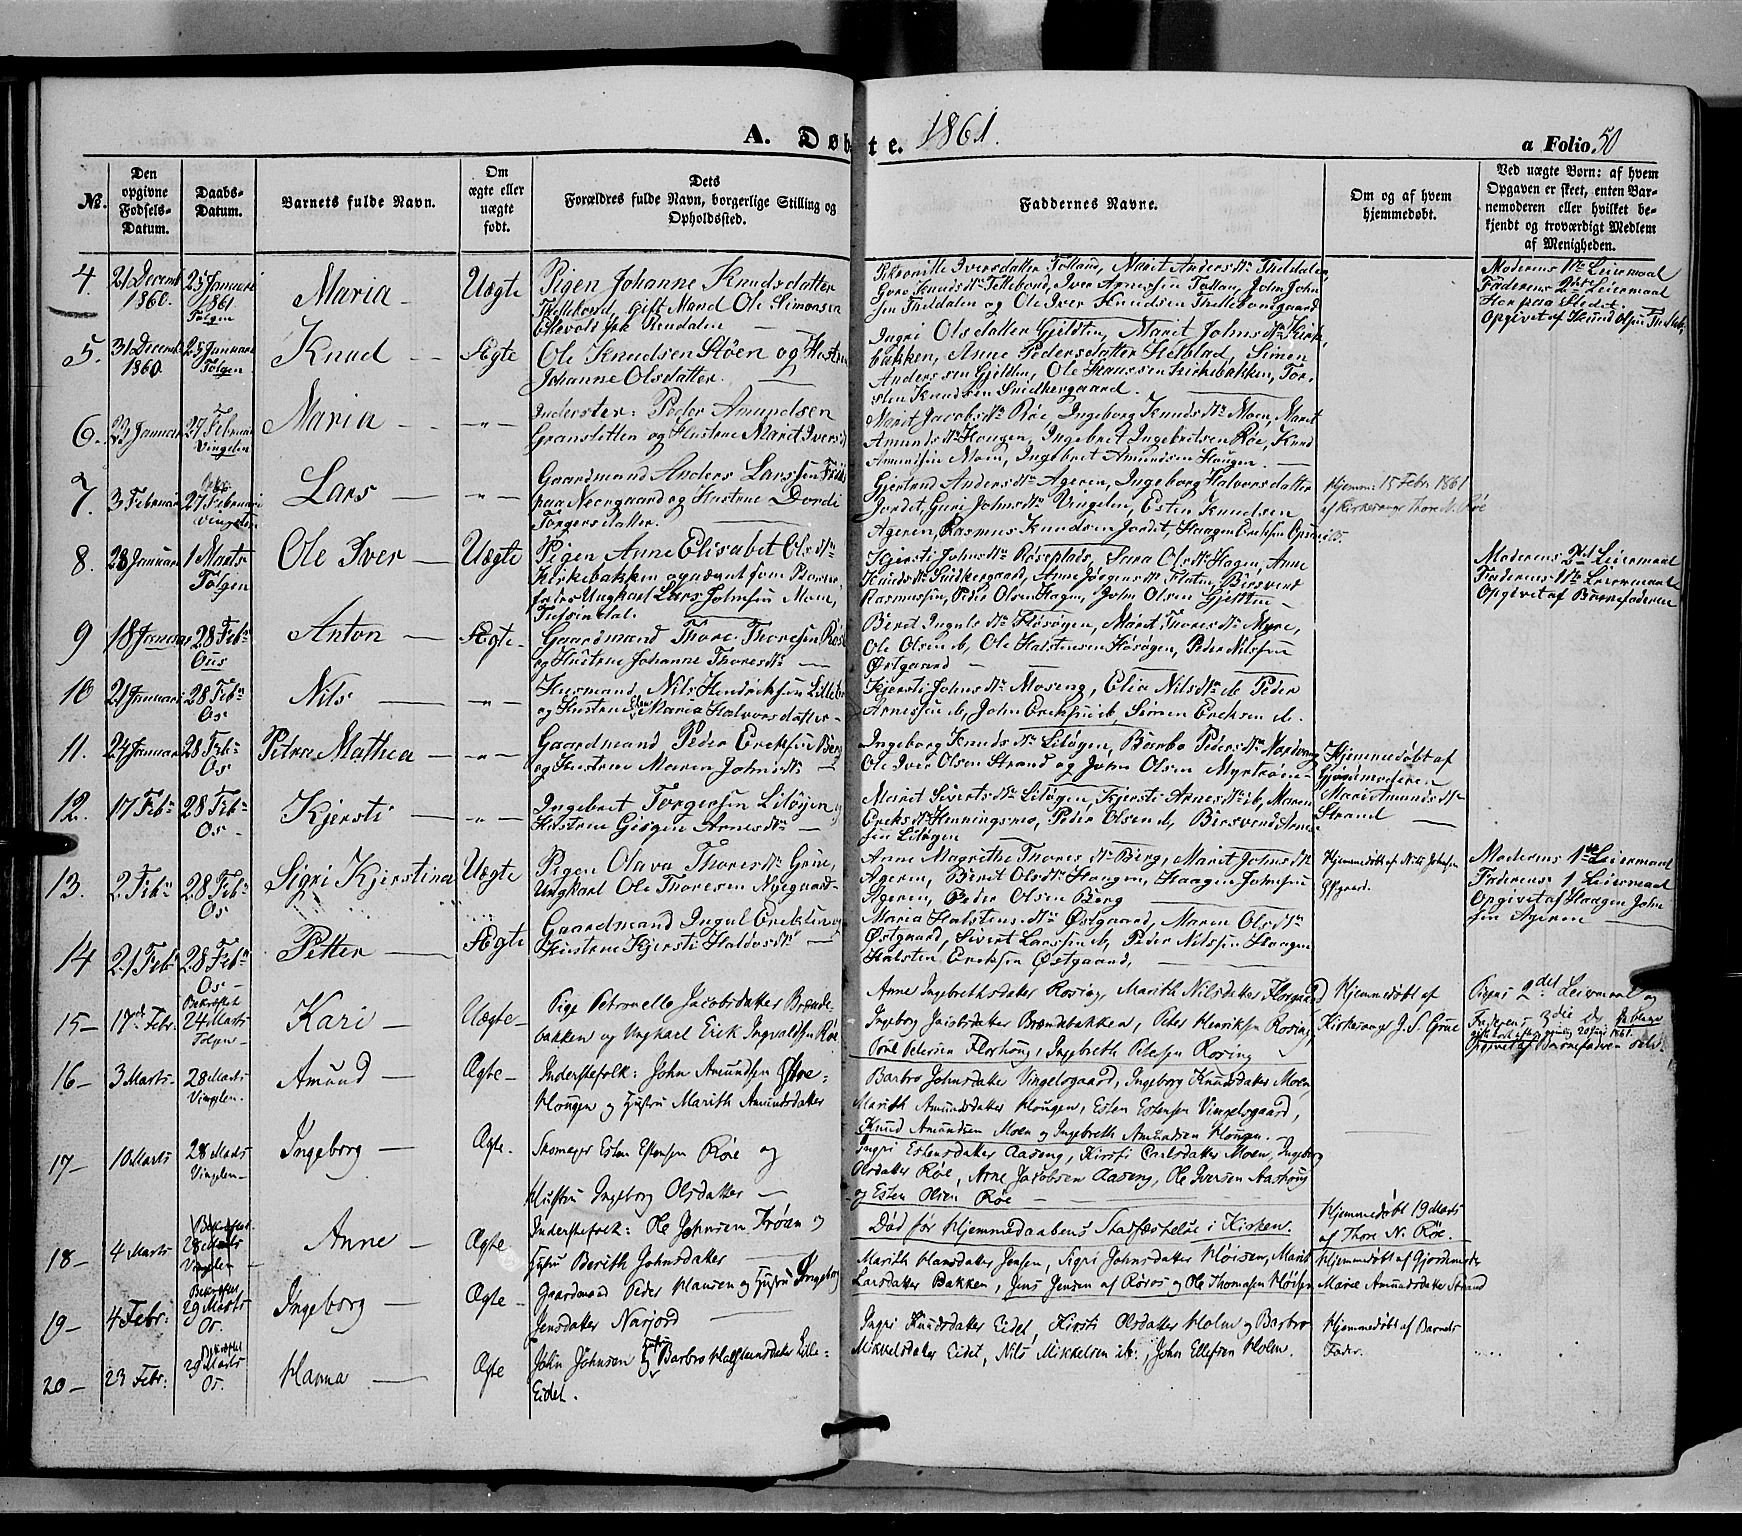 A. Døbte. 1861.
a Folio 50
No.
Den opgivne Fødsels-Datum.
Daabs-Datum.
Barnets fulde Navn.
Om ægte eller uægte født.
Dets Forældres fulde Navn, borgerlige Stilling og Opholdssted.
Faddernes Navne.
Om og af hvem hjemmedøbt.
Ved uægte Børn: af hvem Opgaven er skeet, enten Barnemoderen eller hvilket bekjendt og troværdigt Medlem af Menigheden.
4. 21 Decemb 1860. 25 Januari 1861 Tolgen Maria Uægte
Pigen Johanne Knudsdatter
gift Mand Ole Simonsen
Moderens 1ste Leiermaal
Faderens 2det Leiermaal
Opgivet af Knud Olsen
5. 31 Decemb 1860. 25 Januari Tolgen Knud Ægte
Ole Knudsen Støen og Hustru
Johanne Olsdatter.
Ingri Olsdatter Gjelten, Marit Johnsdtr Kirk-
bakken, Anne Pedersdatter Simen
Anderssen Gjelten, Ole Hanssen Kirkebakken, Tor-
sten Knudsen Snidkergaard.
6. 23 Januar 27 Februar Vingelen Maria
Inderster: Peder Amundsen
og Hustrue Marit Iversd
Marit Jacobsdtr Røe, Ingeborg Knudsdtr Moen, Marit
Amundsdtr Haugen, Ingebret Ingebretsen Røe, Knud
Amundsen Moen, Ingebret Amundsen Haugen.
7. 3 Februar 27 Februari Vingelen Lars
Gaardmand Anders Larssen
paa Neergaard og Hustrue Dordi
Torgersdatter.
Gjertrud Andersdtr Ageren, Ingeborg Halvorsdatter
Jordet, Guri Johnsdtr Vingelen, Esten Knudsen
Ageren, Rasmus Knudsen Jordet, Haagen
Hjemme: 15 Febr 1861
af Kirkesanger Thore N. Røe
8. 28 Januar 1 Marts Tolgen Ole Iver Uægte
Pigen Anne Elisabet Olsdtr
Kirkebakken og udgivet som Barne-
fader Ungkarl Lars Johnsen Moen,
Kjersti Johnsdtr Røseplads, Sara Olsdtr Hagen, Anne
Knudsdtr Snidkergaard, Anne Jørgensdtr Flaten, Bersvend
Rasmussen, Peder Olsen Hagen, John Olsen Gjelten
Moderens 2det Leiermaal
Faderens 1ste Leiermaal
Opgivet af Barnefaderen
9 18 Januar 28 Febr Ous Anton Ægte
Gaardmand Thore Thoresen
og Hustrue Johanne Thoresdtr
Berit Ingulsdtr Floøgen, Marit Thoresdtr Myre,
Ole Olsen ib, Ole Halstensen Peder Nilssen
Østgaard
10 21 Januari 28 Febr Os Nils
Huusmand Nils Hendriksen
og Hustrue Maria Halvorsdatter
Kjersti Johnsdtr Moseng, Elie Nilsdtr ib Peder
Arnessen ib, John Ericksen ib, Simen Ericksen ib.
11. 24 Januar 28 Feb. Os Petrine Mathea
Gaardmand Peder Ericksen
og Hustrue Maren Johnsdtr
Ingeborg Knudsdtr Litøgen, Barbo Pedersdtr Nordvang
Ole Iver Olsen Strand og John Olsen Myrtrøen
Hjemmedøbt af Gjordmoderen Marit Amundsdtr Strand
12. 17 Febr 28 Febr Os Kjersti
Ingebret Torgersen Litøgen
Hustrue Gjøgen Arnesdtr
Marit Sivertsdtr Litøgen, Kjersti Arnesdtr ib, Maren
Eriksdtr Henningsmo, Peder Olsen ib, Bersvend Arnes-
sen Litøgen
13. 2 Febr 28 Febr Os Sigri Kjerstina Uægte
Pigen Olava Thoresdtr Grue,
Ungkarl Ole Thoresen Nyegaard
Anne Magrethe Thoresdtr Berg, Marit Johnsdtr
Ageren, Berit Olsdtr Haugen, Haagen Johnsen
Ageren, Peder Olsen Berg
Hjemmedøbt af Nils Johnsen
Moderens 1ste Leiermaal
Faderens 1 Leiermaal
Opgivet af Haagen John-
sen Ageren
14 21 Febr 28 Febr Os Petter Ægte
Gaardmand Ingul Ericksen
Hustrue Kjersti
Maria Halstensdtr Østgaard, Maren Olsdtr
Østgaard, Sivert Larssen ib, Peder Nilssen Haagen
Halsten Ericksen Østgaard,
15 17de Febr. Bekræftet 24 Marts Tolgen Kari Uægte
Pige Petronelle Jacobsdatter Brænde-
bakken og Ungkarl Erik Ingvaldsen Røe
Anne Ingebrethsdatter Rosing, Marith Nilsdatter
Ingeborg Jacobsdatter Brændebakken, Peter Henriksen Rosing
Poul Petersen Florhaug, Ingebreth Petersen Rosing
Hjemmedøbt af Kirkesanger J. S. Grue
Pigens 2det Leiermaal og
Faderens 3die
Opgivet af Barnefaderen
16 3 Marts 28 Marts Vingelen Amund Ægte
Inderstefolk: John Amundsen
Haugen og Hustru Marith Amundsdatter
Barbro Johnsdatter Vingelsgaard, Ingeborg Knudsdatter Moen
Marith Amundsdatter Haugen, Esten Estensen Vingelsgaard,
Knud Amundsen Moen og Ingebreth Amundsen Haugen.
17 10 Marts 28 Marts Vingelen Ingeborg Ægte
Skomager Esten Estensen Røe og
Hustru Ingeborg Olsdatter
Ingri Estensdatter Aaseng, Kirsti Carlsdatter Moen, Ingeborg
Olsdatter Røe, Arne Jacobsen Aaseng, Ole Iversen
og Esten Olsen Røe
18 4 Marts Bekræftet 28 Marts Vingelen Anne Ægte
Inderstefolk: Ole Johnsen Trøan og
Hustru Berith Johnsdatter
Død før Hjemmedaabens Stadfæstelse i Kirken.
Hjemmedøbt 19 Marts af Thore N. Røe.
19 4 Febr: Bekræftet 29 Marts Os. Ingeborg Ægte
Gaardmand Peder Hansen og Hustru Ingeborg
Jensdatter Narjord
Marith Hansdatter Jensen, Sigri Johnsdatter Høisen, Marit
Larsdatter Bakken, Jens Jensen af Røros og Ole Thomasen Høisen
Hjemmedøbt af Gjordmoder Marie Amundsdatter Strand
20 23 Febr: Bekræftet 29 Marts Os. Hanna Ægte
John Johnsen og Hustru Barbro Halstensdatter Lille-
Eidet.
Ingri Knudsdatter Eidet, Kirsti Olsdatter Holm og Barbro
Mikkelsdatter Eidet, Nils Mikkelsen ib:, John Ellefsen Holm.
Hjemmedøbt af Barnets Fader.